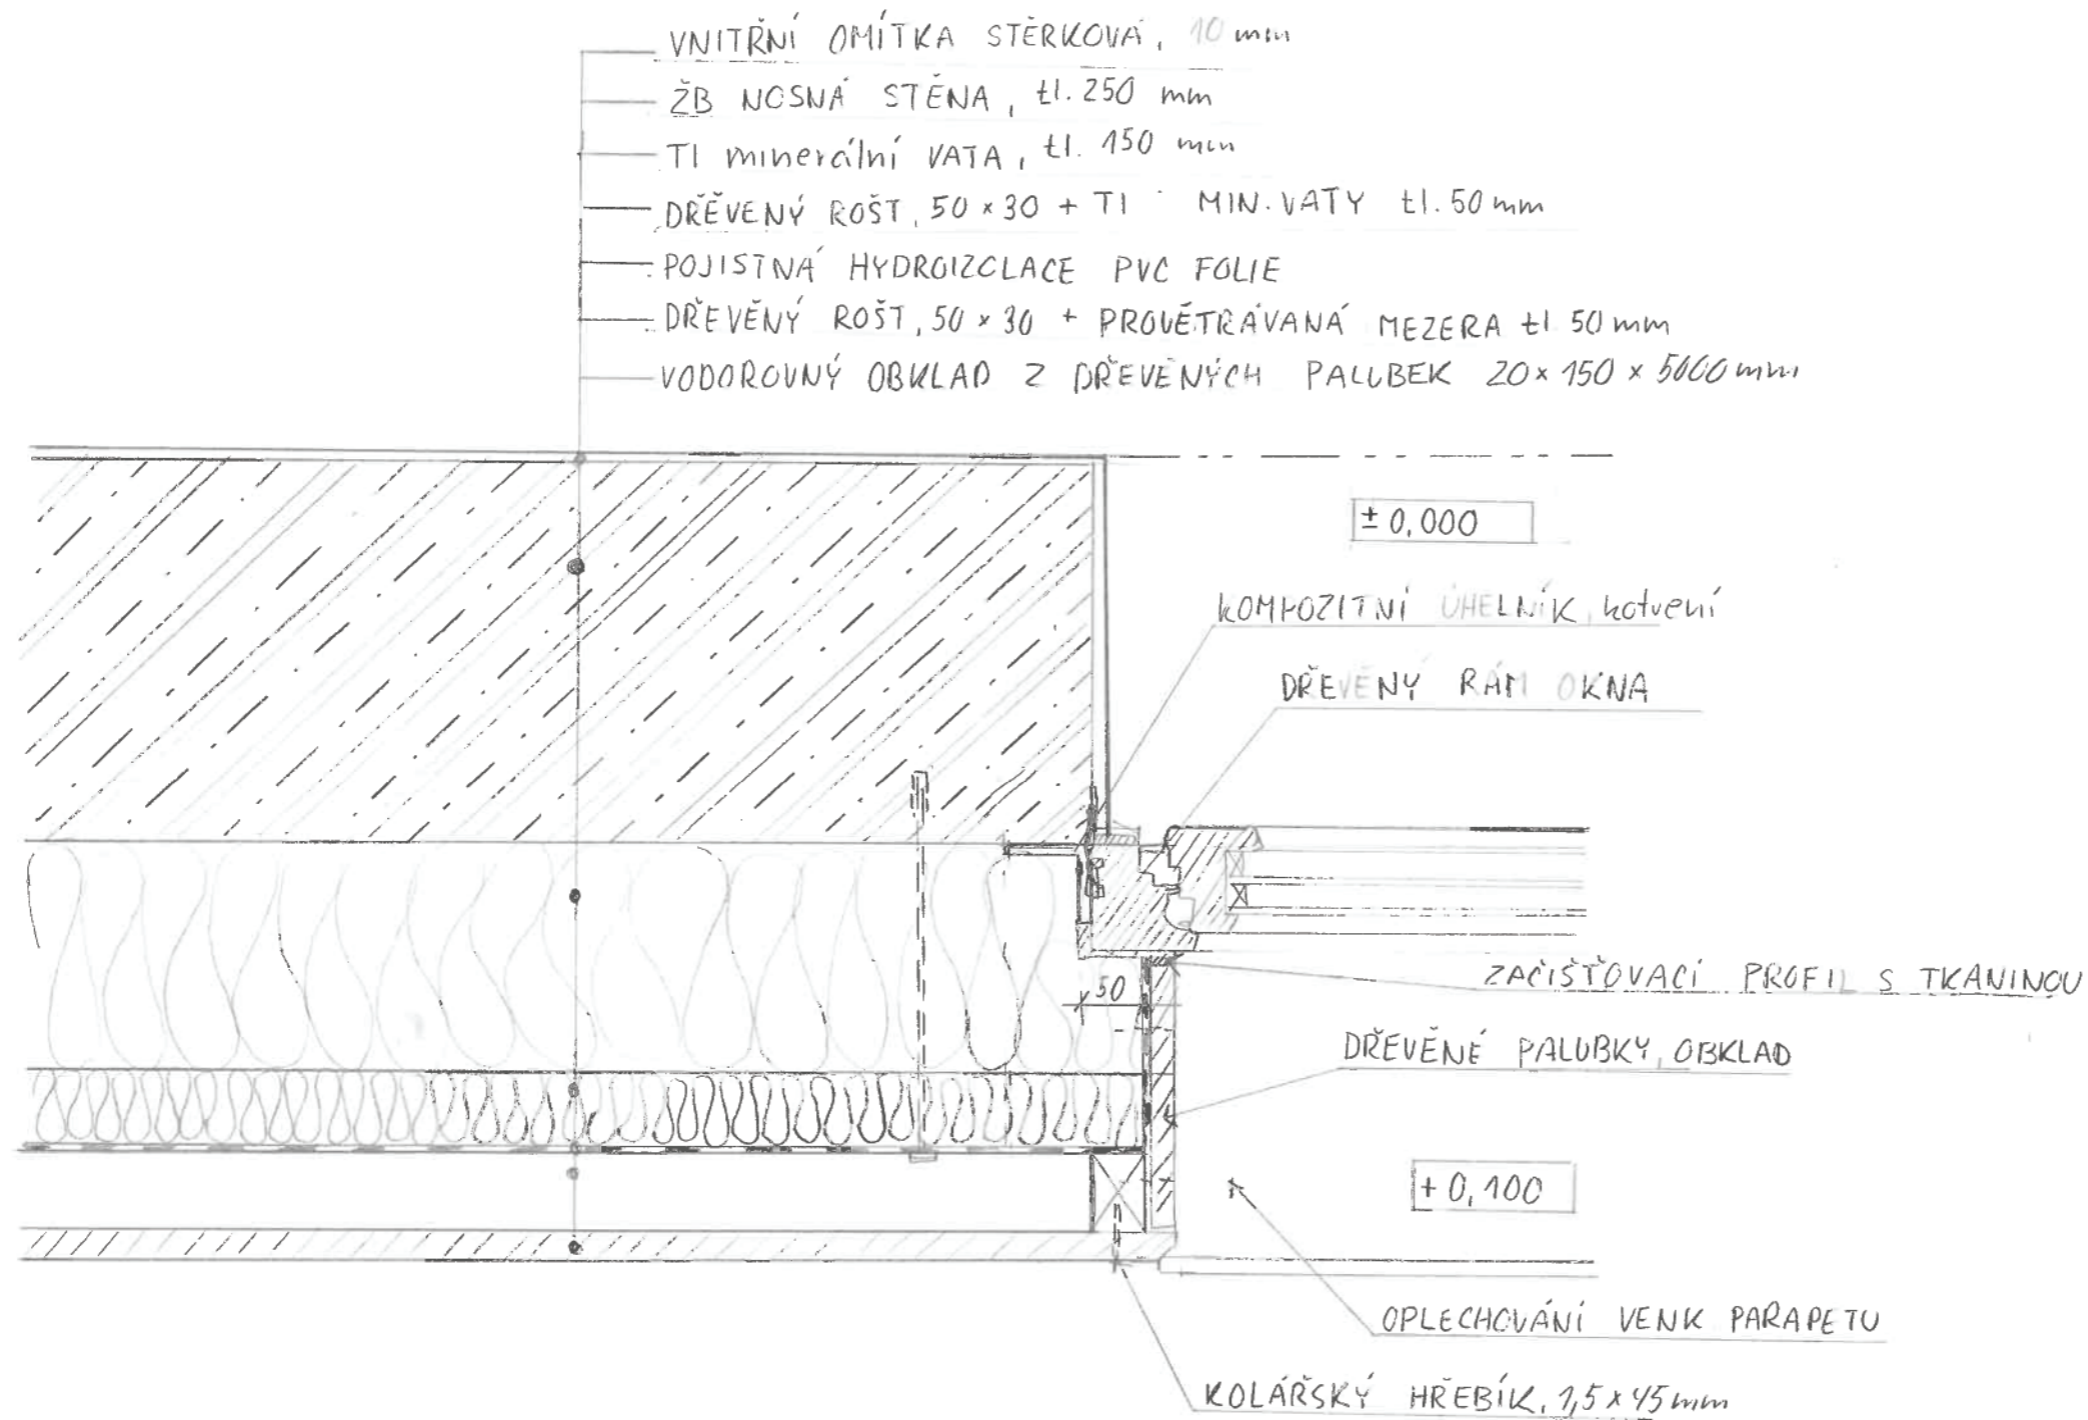 VNITŘNÍ OMÍTKA STĚRKOVÁ, 10 mm
ŽB NOSNÁ STĚNA, tl. 250 mm
TI minerální VATA, tl. 150 mm
DŘEVENÝ ROŠT, 50 × 30 + TI MIN. VATY tl. 50 mm
POJISTNÁ HYDROIZOLACE PVC FOLIE
DŘEVĚNÝ ROŠT, 50 × 30 + PROVĚTRÁVANÁ MEZERA tl 50 mm
VODOROVNÝ OBKLAD Z DŘEVĚNÝCH PALUBEK 20 × 150 × 5000 mm
± 0,000
KOMPOZITNÍ ÚHELNÍK, kotvení
DŘEVĚNÝ RÁM OKNA
ZAČIŠŤOVACÍ PROFIL S TKANINOU
50
DŘEVĚNÉ PALUBKY, OBKLAD
+ 0,100
OPLECHOVÁNÍ VENK PARAPETU
KOLÁŘSKÝ HŘEBÍK, 1,5 × 45 mm